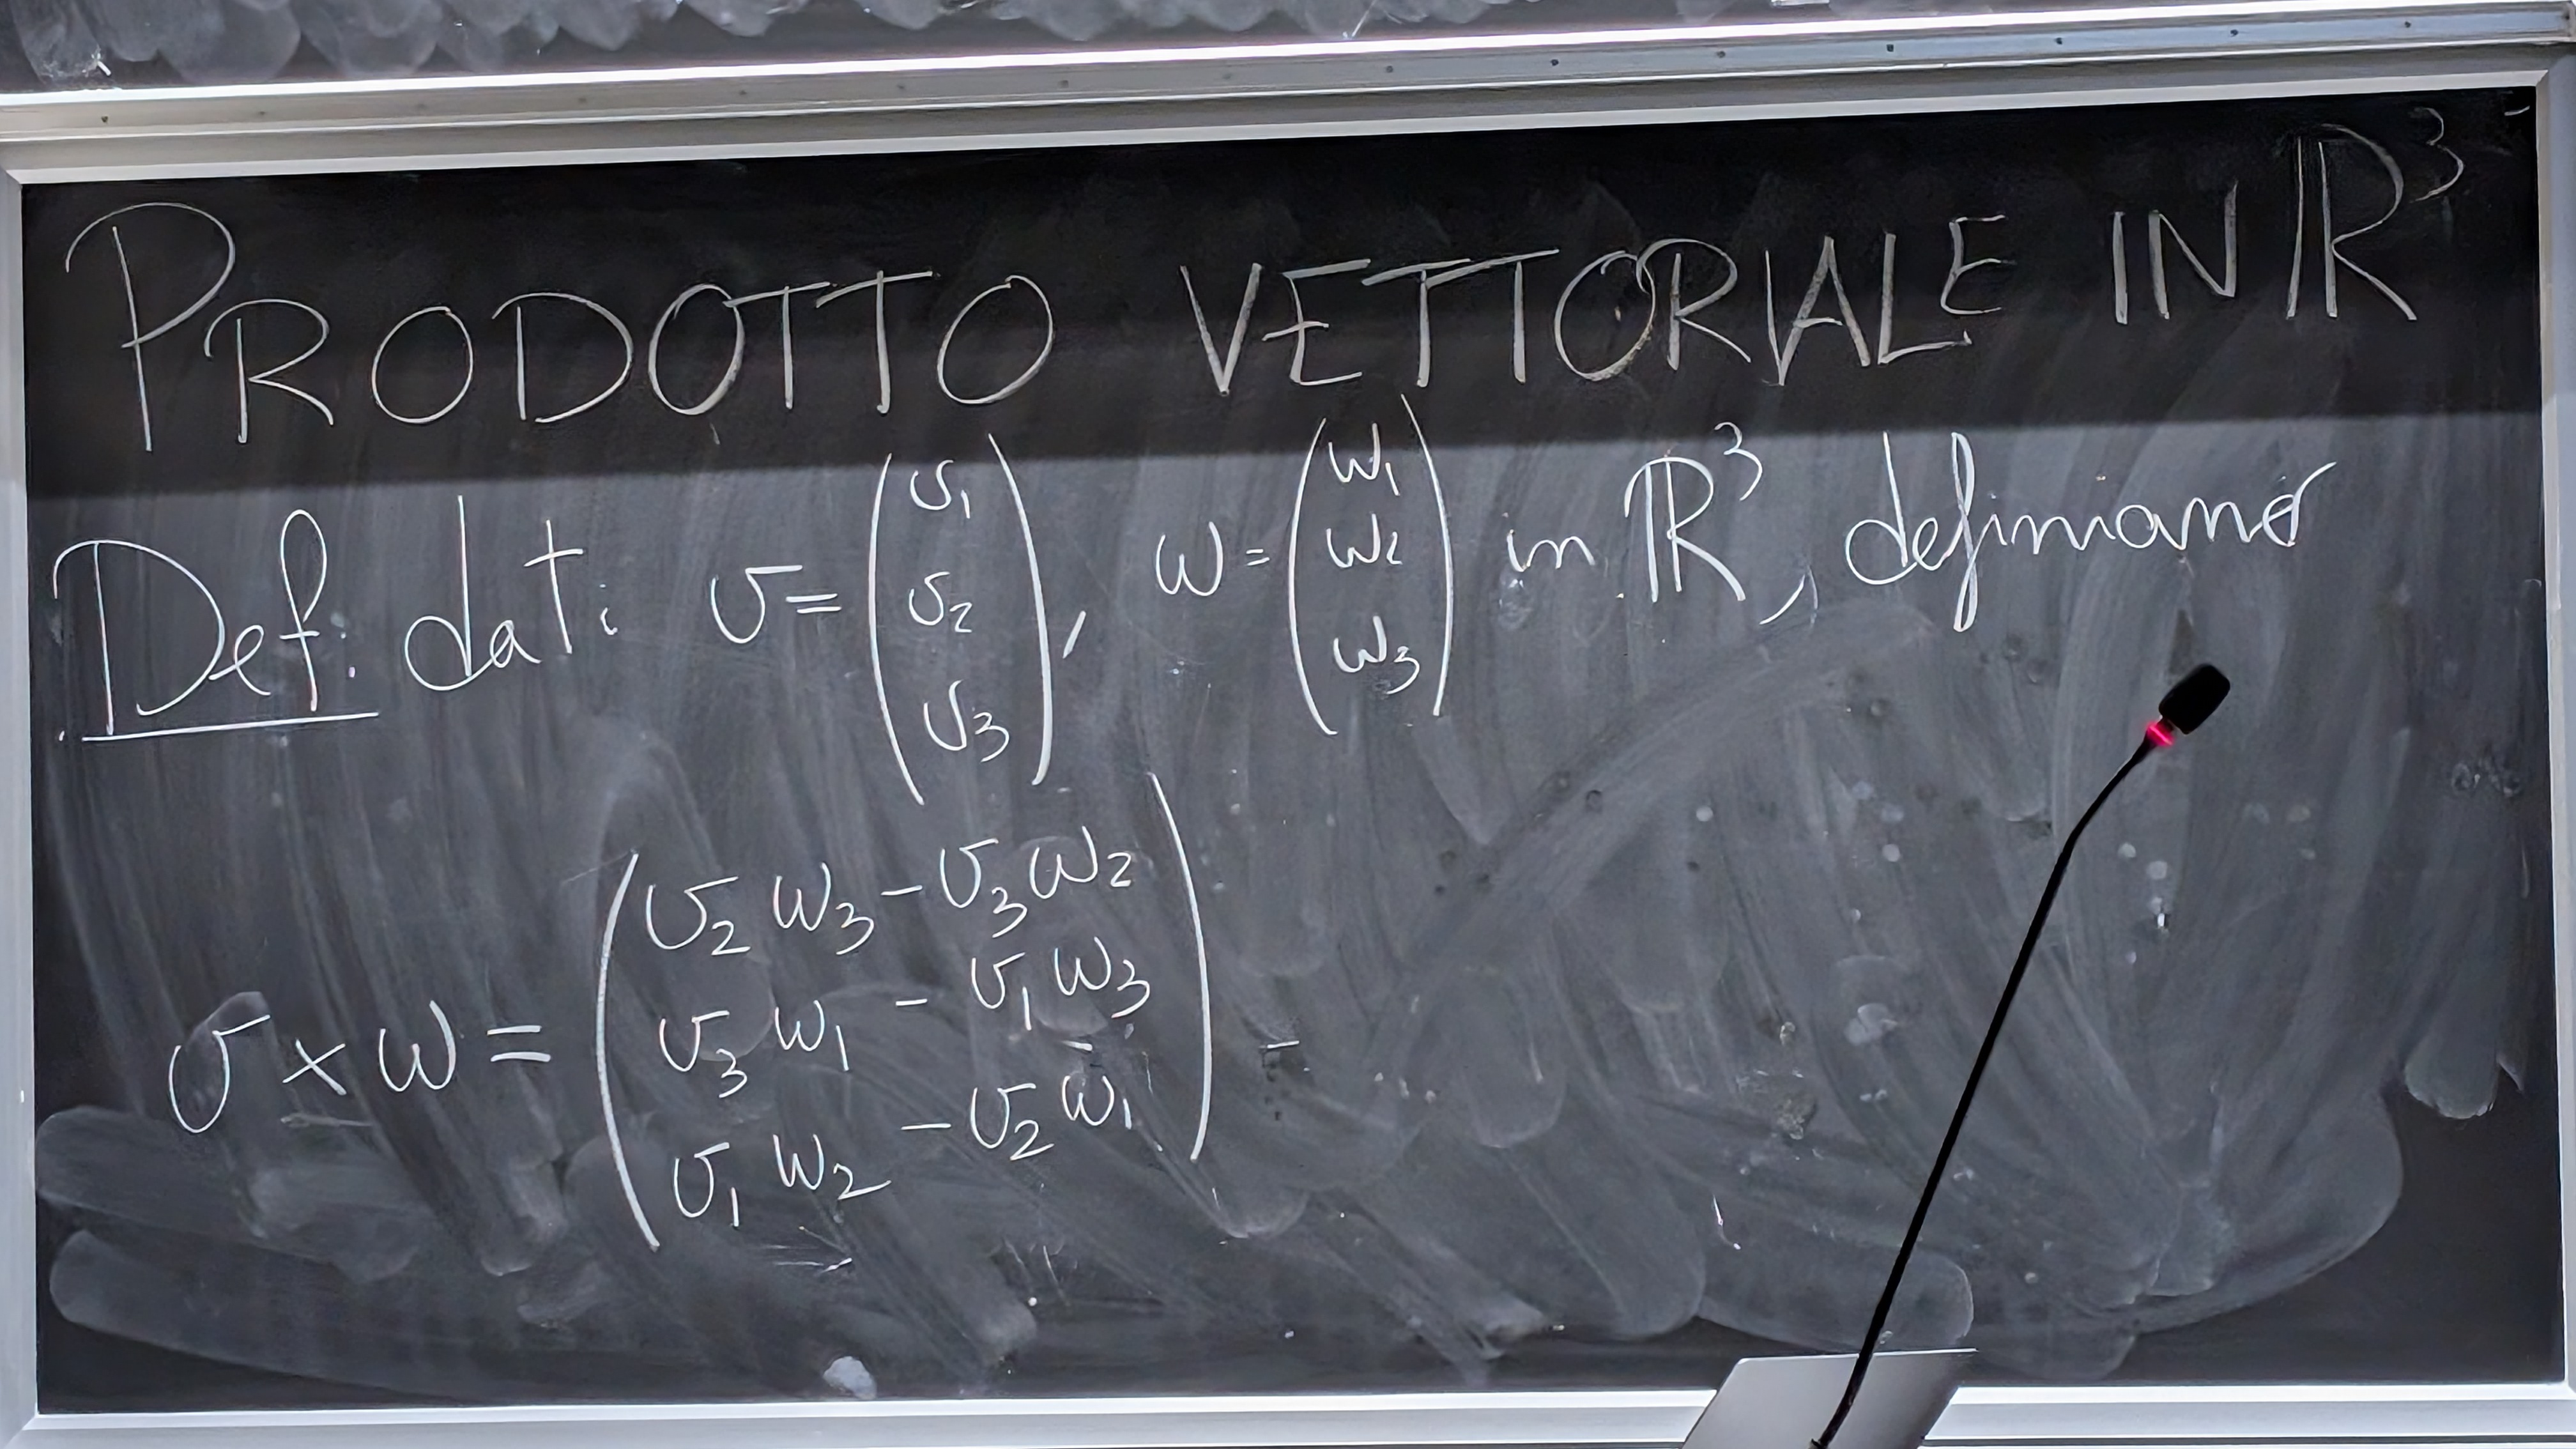 PRODOTTO VETTORIALE IN ℝ³
Def: dati v = (v₁ v₂ v₃), w = (w₁ w₂ w₃) in ℝ³, definiamo
v × w = (v₂ w₃ − v₃ w₂
v₃ w₁ − v₁ w₃
v₁ w₂ − v₂ w₁)